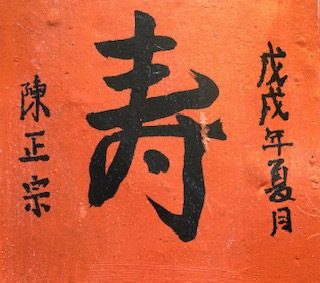 戊戌年夏月
寿
陳正宗